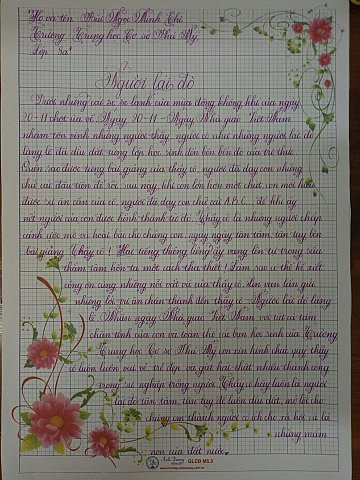 Họ và tên: Bùi Ngọc Thính Chi
Trường: Trung học Cơ sở Như Mỹ
Lớp: 8a
Người lái đò
Dưới những cái se se lạnh của mùa đông không khí của ngày
20-11 chợt ùa về. Ngày 20-11 - Ngày Nhà giáo Việt Nam
nhằm tôn vinh những người thầy, người cô như những người lái đò
lặng lẽ đã dìu dắt từng lớp học sinh đến bến bờ của tri thức.
Quên sao được từng bài giảng của thầy cô, người đã dạy con những
chữ cái đầu tiên để rồi sau này, khi con lớn hơn một chút, con mới hiểu
được sự ân cần của cô, người đã dạy con chữ cái A,B,C... để khi ấy
nét người của con được hình thành từ đó. Thầy cô là những người chắp
cánh ước mơ và hoài bão cho chúng con, ngày ngày tận tâm, tận tụy bên
bài giảng. Thầy cô! Hai tiếng thiêng liêng ấy vang lên từ trong sâu
thẳm tâm hồn ta một cách tha thiết! Làm sao có thể kể xiết
công ơn cùng những nỗi vất vả của thầy cô, con vẫn luôn gửi
những lời tri ân chân thành đến thầy cô - Người lái đò lặng
lẽ. Nhân ngày Nhà giáo Việt Nam với tất cả tâm
chân tình của con và toàn thể các bạn học sinh của Trường
Trung học Cơ sở Như Mỹ con xin kính chúc quý thầy
cô luôn luôn vui vẻ, trẻ đẹp và gặt hái thật nhiều thành công
trong sự nghiệp trồng người. Thầy cô hãy luôn là người
lái đò tận tâm, tận tụy để luôn dìu dắt, mở lối cho
chúng con thành người có ích cho xã hội và là
những mầm
non của đất nước.
Anh Dương
GLCĐ M5.3